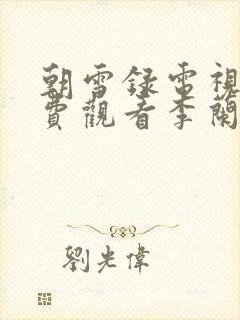 朝雪録電視
費觀看李蘭
劉光偉